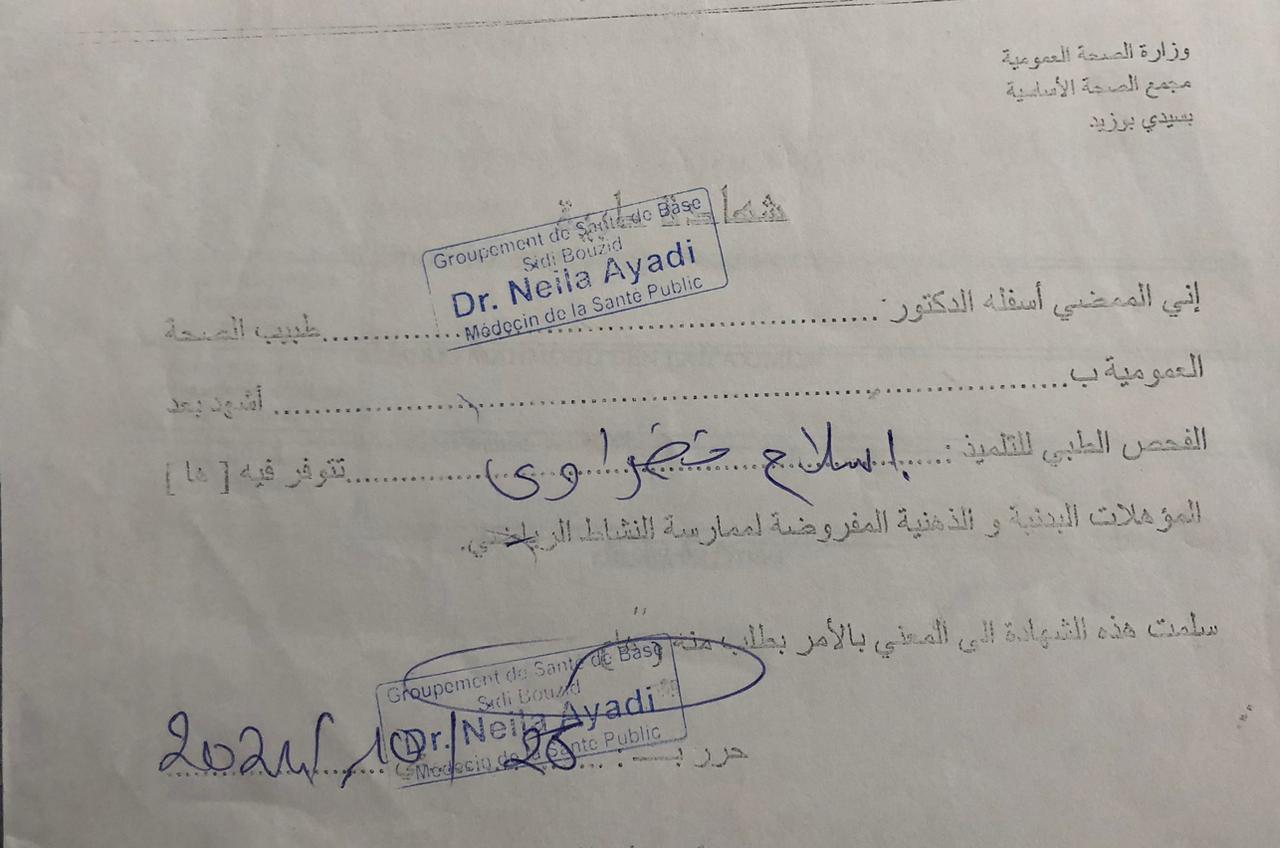 وزارة الصحة العمومية
مجمع الصحة الأساسية
بسيدي بوزيد
شهادة طبية
Groupement de Santé de Base
Sidi Bouzid
Dr. Neila Ayadi
Médecin de la Santé Public
إني الممضي أسفله الدكتور : طبيب الصحة
العمومية ب أشهد بعد
الفحص الطبي للتلميذ : اسلام خضراوي تتوفر فيه [ ها ]
المؤهلات البدنية و الذهنية المفروضة لممارسة النشاط الرياضي.
سلمت هذه الشهادة الى المعني بالأمر بطلب منه
Groupement de Santé de Base
Sidi Bouzid
Dr. Neila Ayadi
Médecin de la Santé Public
حرر بـ : 25 / 10 / 2024